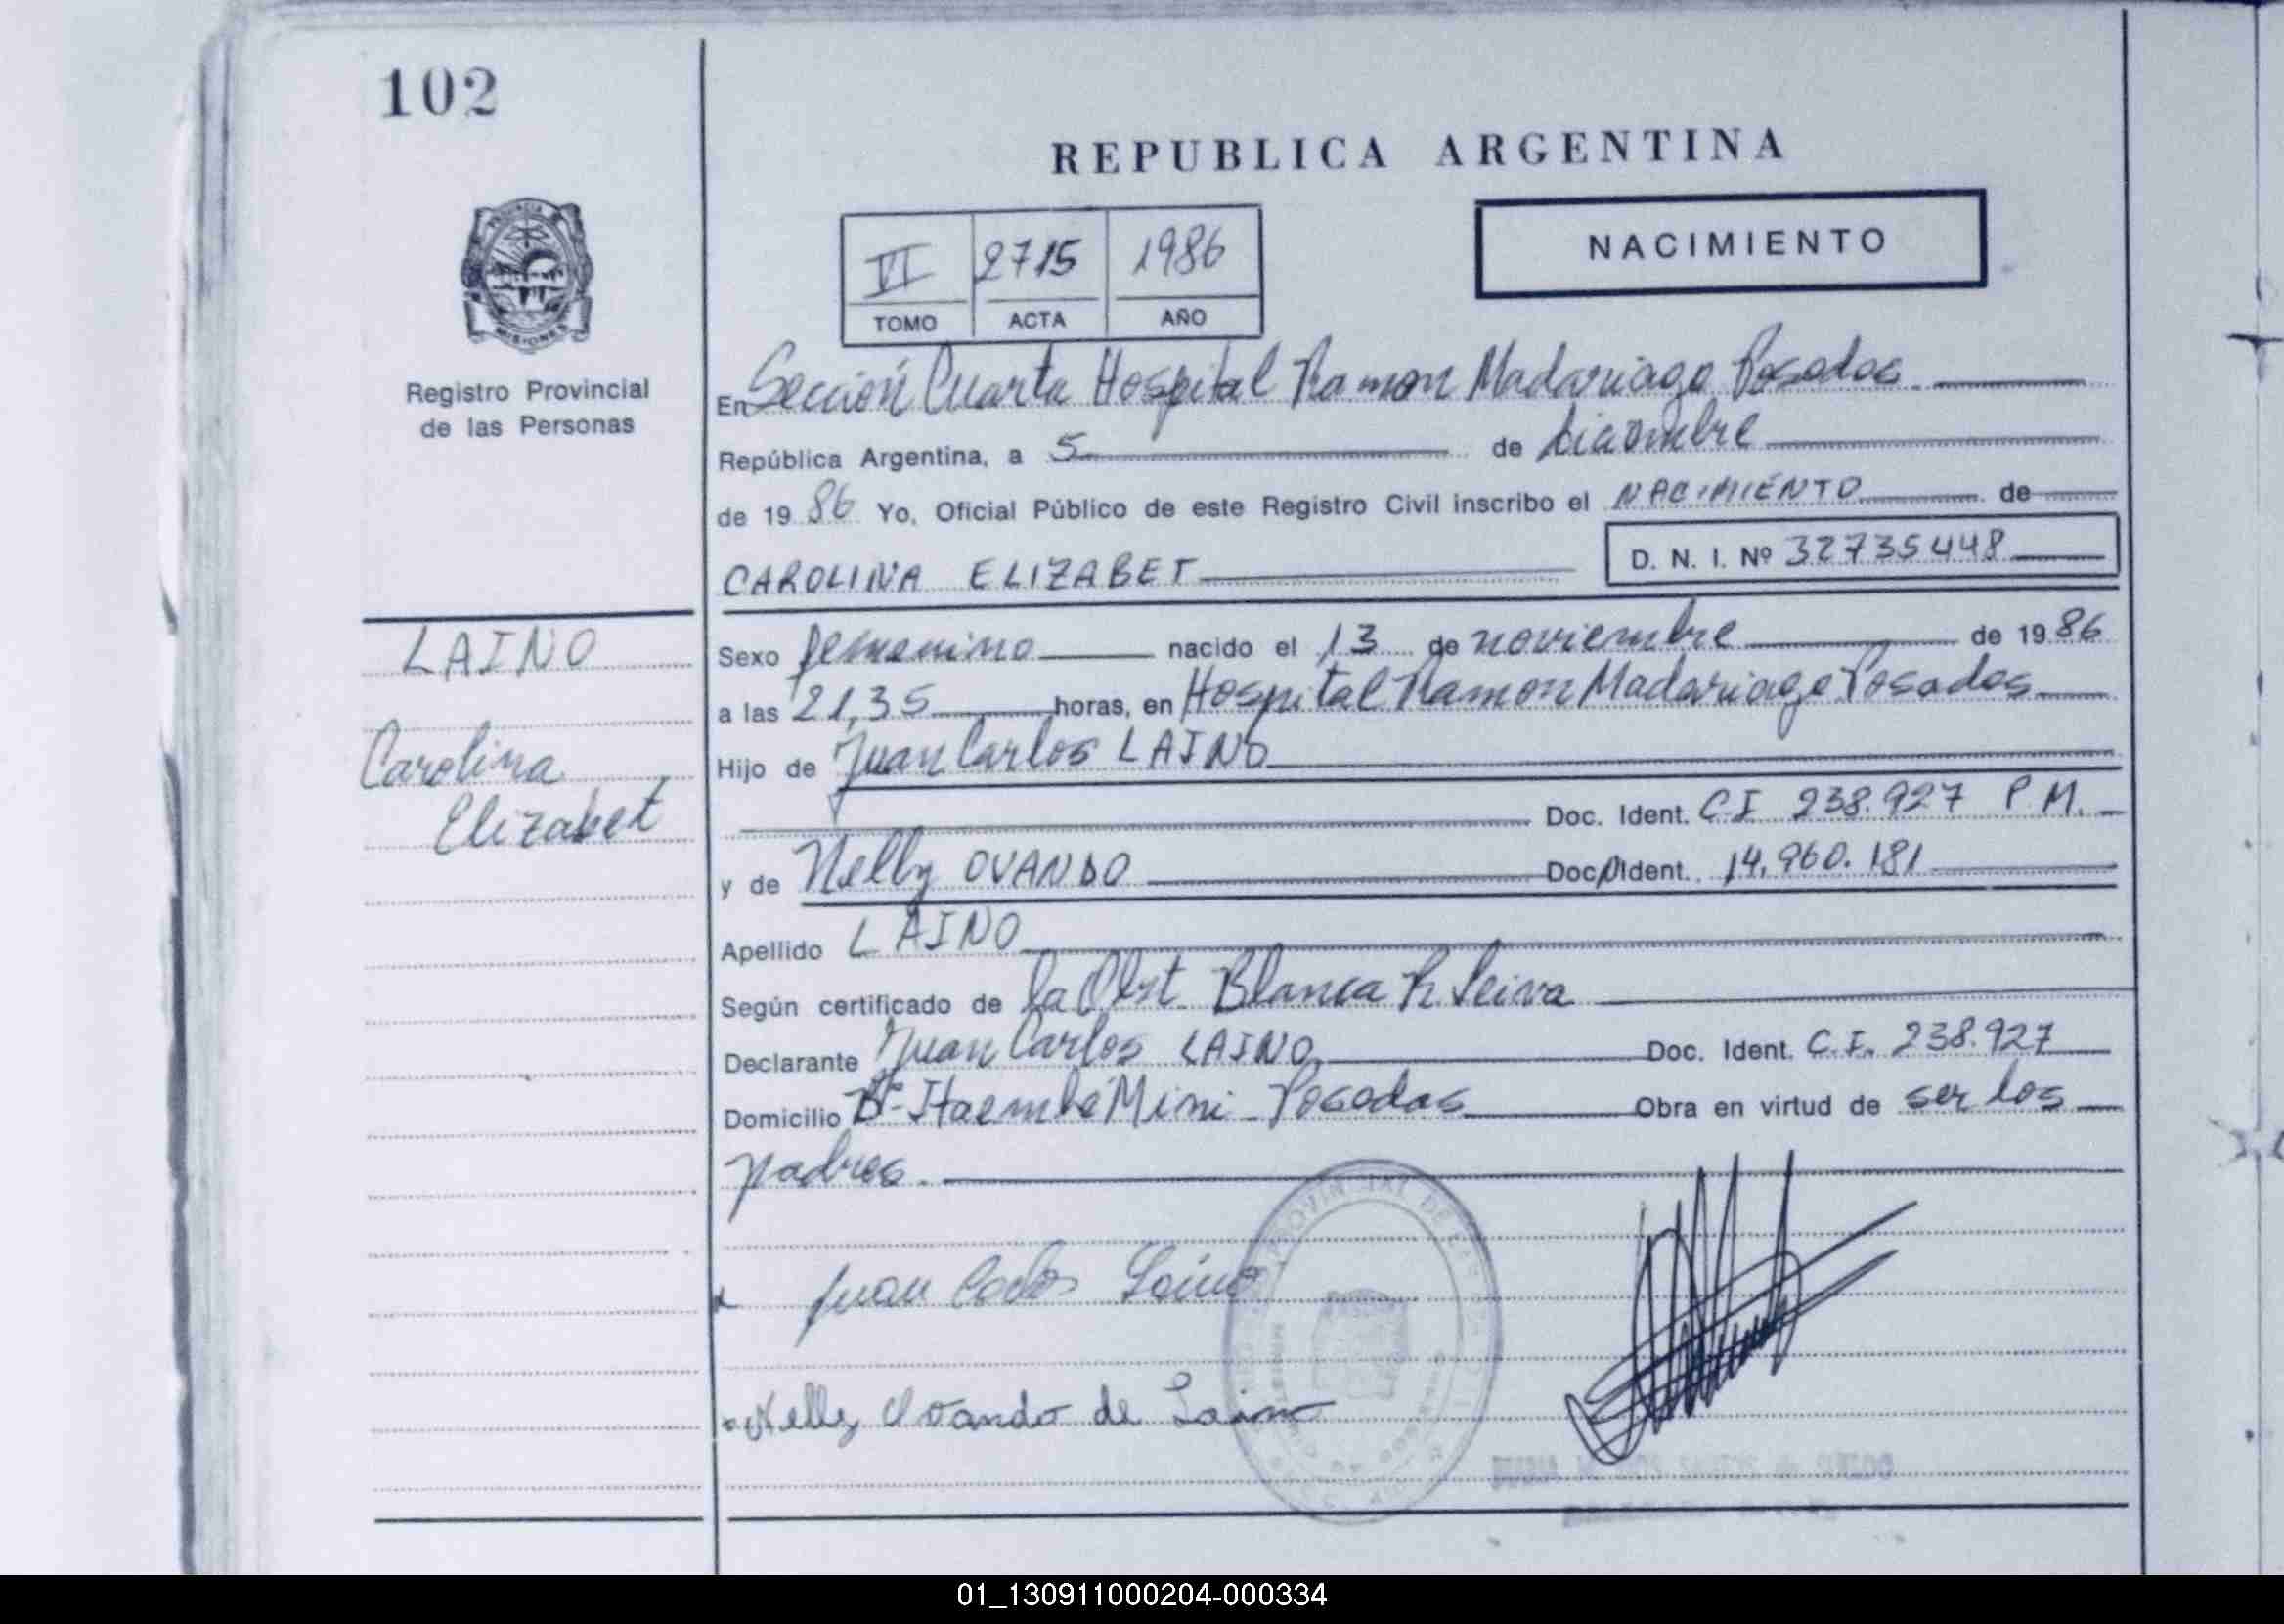 102
REPUBLICA ARGENTINA
NACIMIENTO
VI 2715 1986
TOMO ACTA AÑO
PROVINCIA DE
MISIONES
Registro Provincial
de las Personas
En Sección Cuarta Hospital Ramon Madariaga Posadas
República Argentina, a 5 de diciembre
de 1986 Yo, Oficial Público de este Registro Civil inscribo el NACIMIENTO de
CAROLINA ELIZABET D. N. I. Nº 32735448
LAINO
Carolina
Elizabet
Sexo femenino nacido el 13 de noviembre de 1986
a las 21,35 horas, en Hospital Ramon Madariaga Posadas
Hijo de Juan Carlos LAINO
Doc. Ident. C.I 238.927 P.M.
y de Nelly OVANDO Doc. Ident. 14.960.181
Apellido LAINO
Según certificado de la Obst. Blanca R Leiva
Declarante Juan Carlos LAINO Doc. Ident. C.I. 238.927
Domicilio Bº Itaembé Mini Posadas Obra en virtud de ser los
padres.
Juan Carlos Laino
Nelly Ovando de Laino
01_130911000204-000334